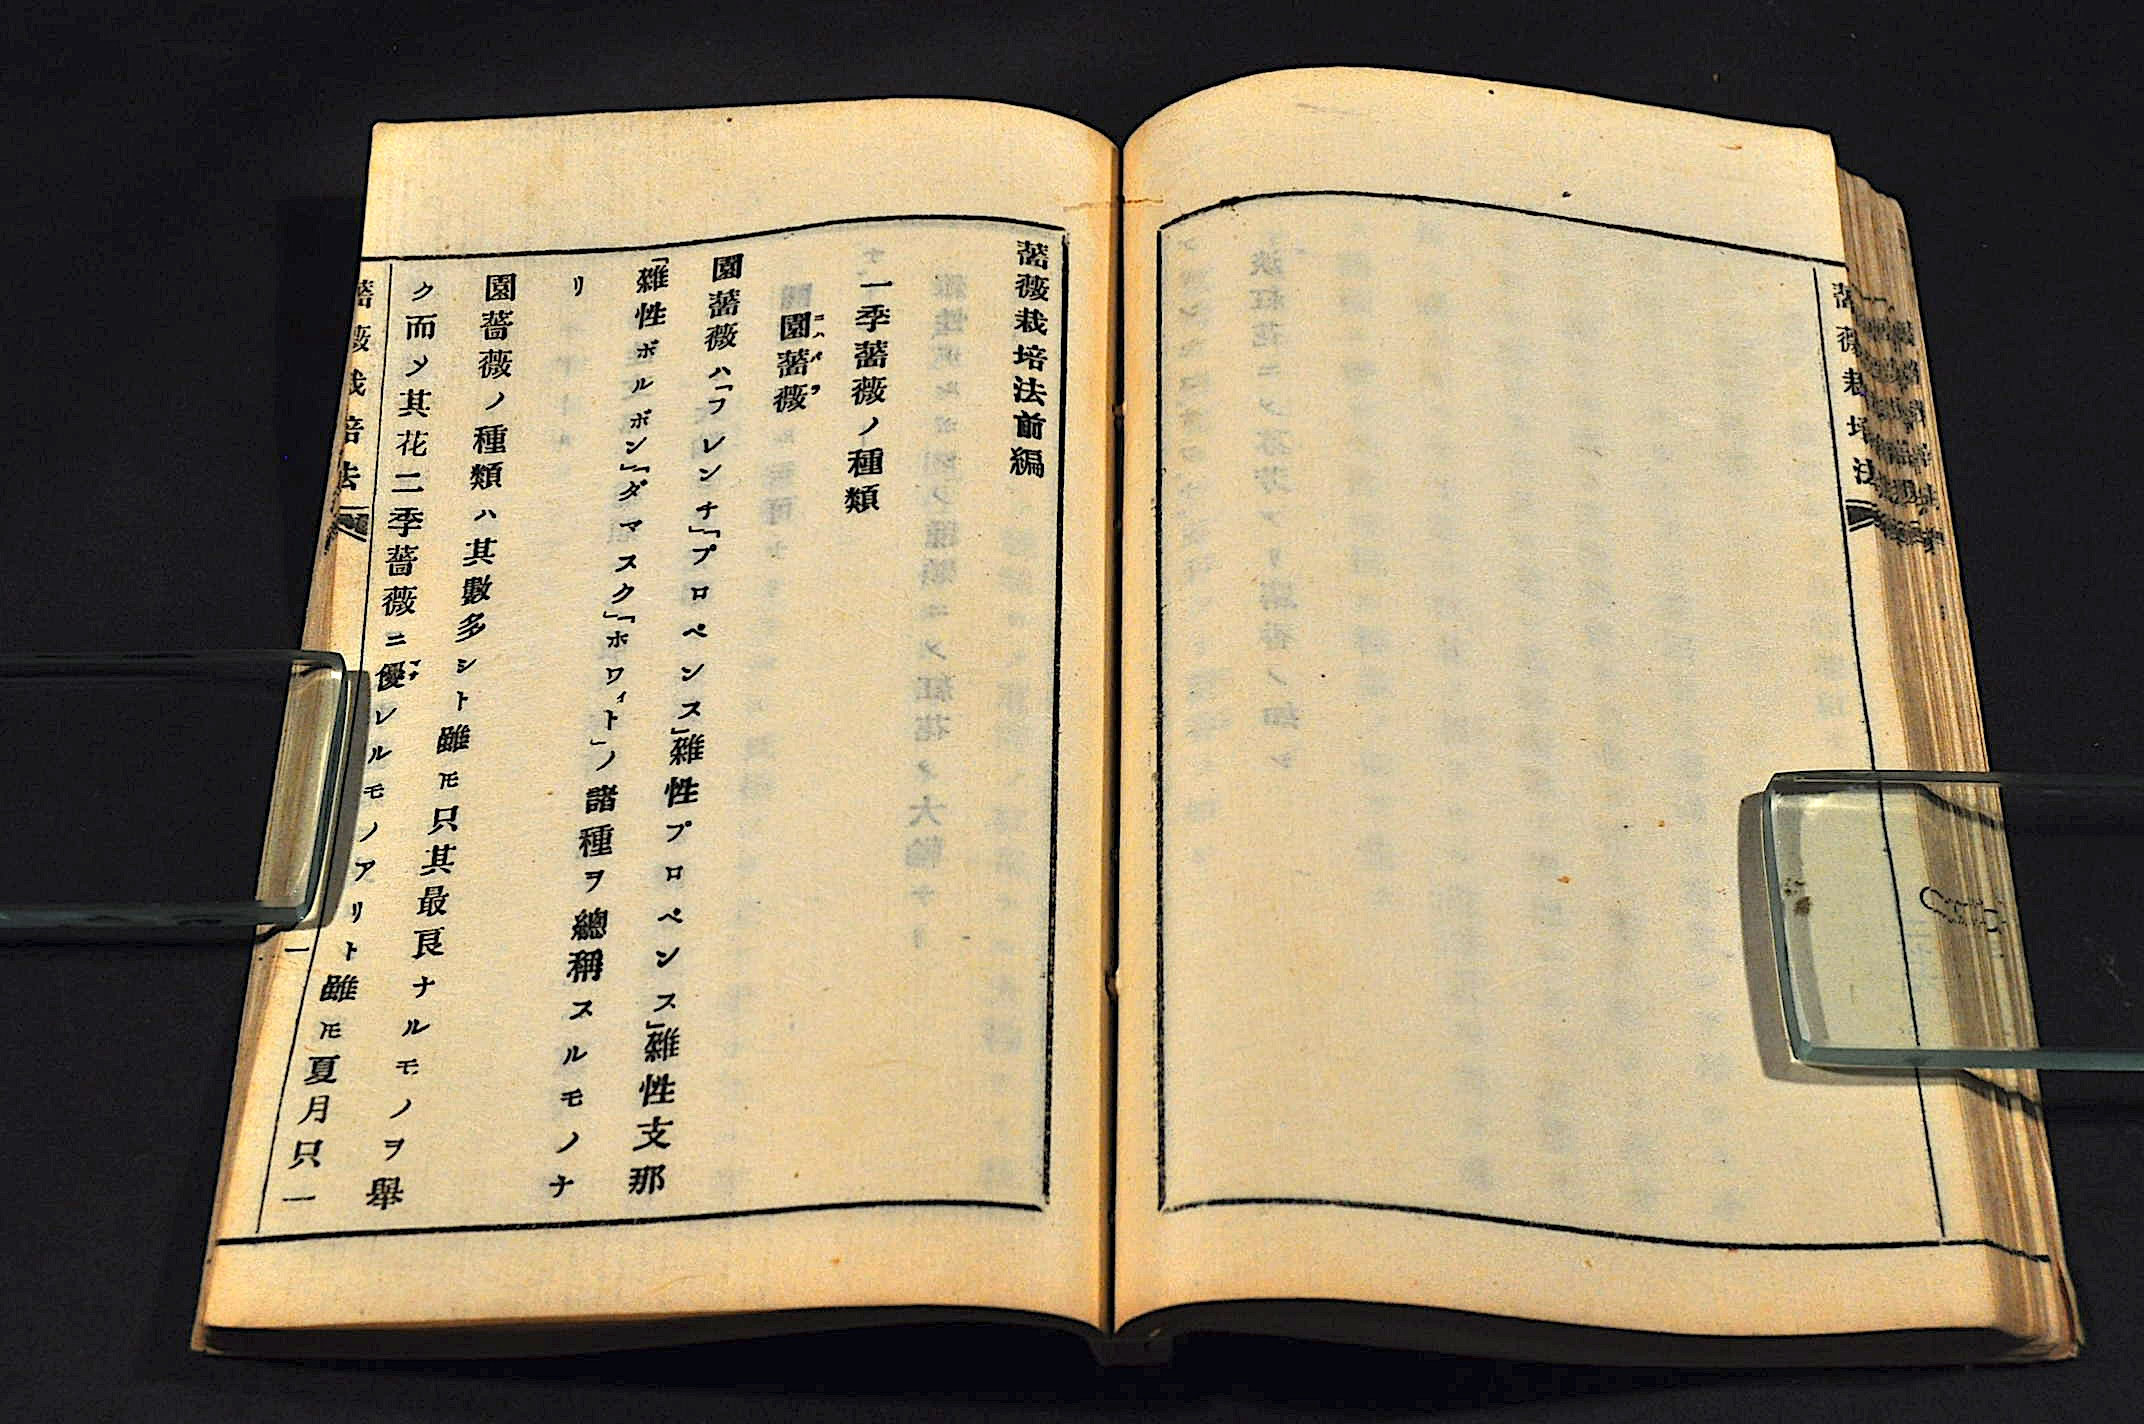 薔薇栽培法前編
一季薔薇ノ種類
園薔薇
ニハバラ
園薔薇ハ「フレンチ」「プロペンス」雜性プロペンス」雜性支那
「雜性ボルボン」「ダマスク」「ホワイト」ノ諸種ヲ總稱スルモノナ
リ
園薔薇ノ種類ハ其數多シト雖モ只其最良ナルモノヲ舉
ク而メ其花二季薔薇ニ優レルモノアリト雖モ夏月只一
薔薇栽培法
一
薔薇栽培法